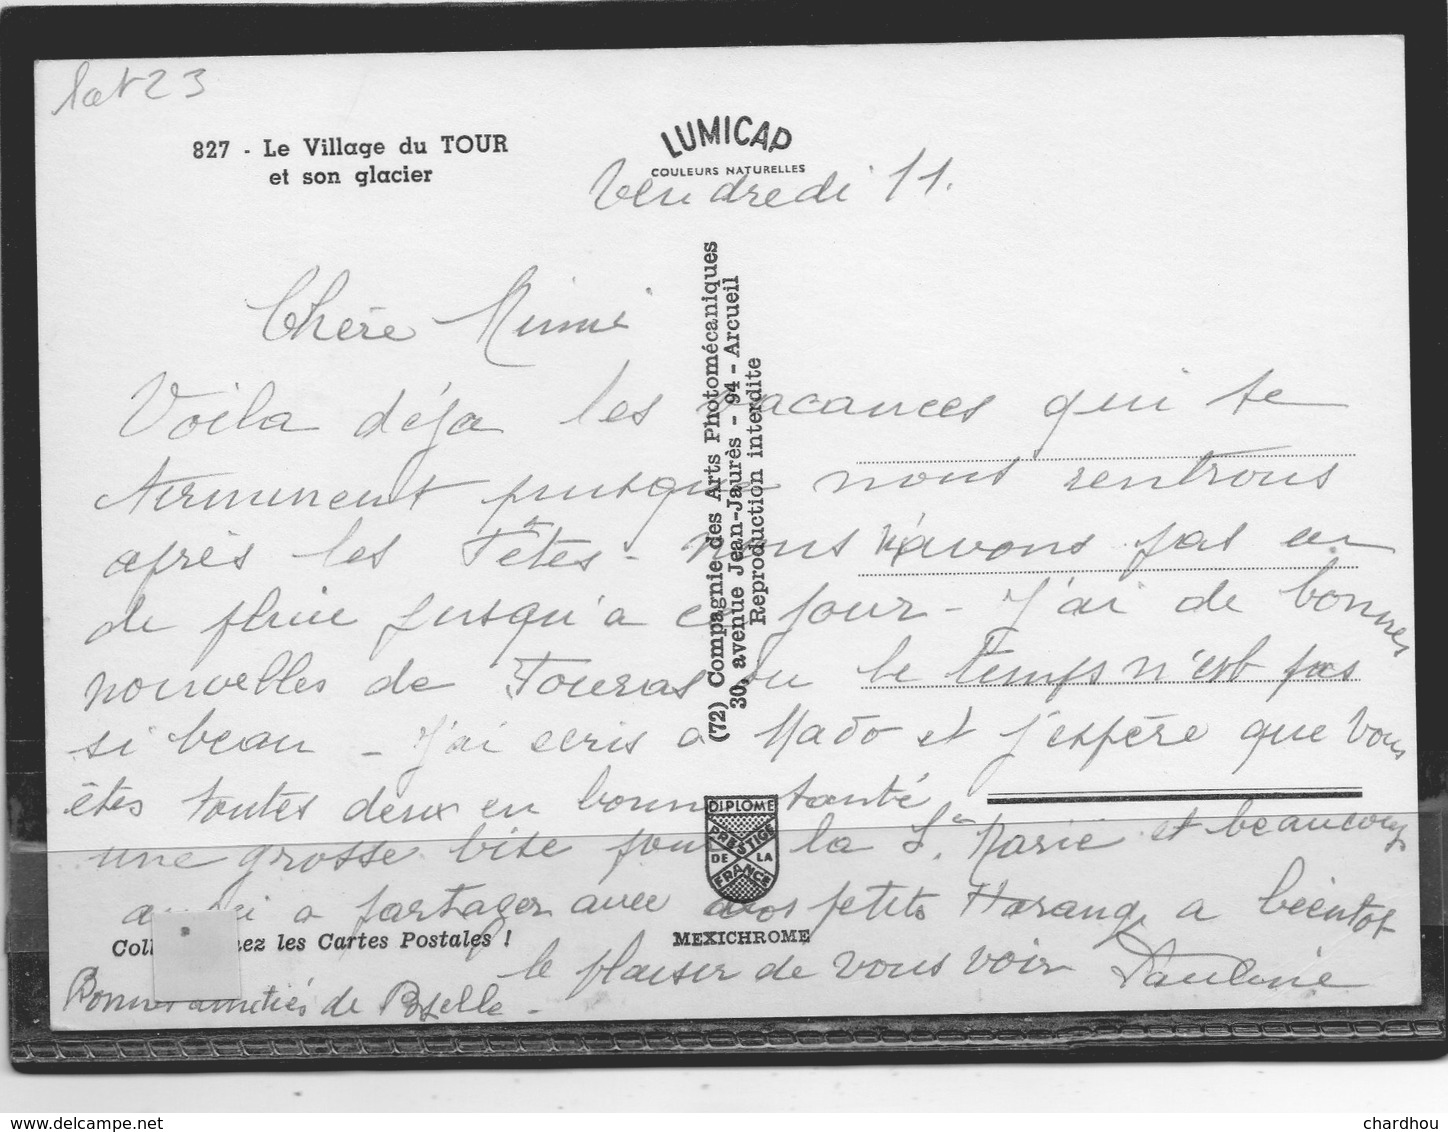 lot 23
827 - Le Village du TOUR
et son glacier
LUMICAP
COULEURS NATURELLES
Vendredi 11.
Chère Mimi
Voila déja les vacances qui se
terminent puisque nous rentrons
après les Fêtes - nous n'avons pas eu
de pluie jusqu'a ce jour - J'ai de bonnes
nouvelles de Fouras ou le temps n'est pas
si beau - J'ai ecris a Mado et j'espère que vous
êtes toutes deux en bonne santé
une grosse bise pour la Sr. Marie et beaucoup
aussi a partager avec vos petits Harang a bientot
le plaisir de vous voir Pauline
Bonnes amitiés de
(72) Compagnie des Arts Photomécaniques
30, avenue Jean-Jaurès - 94 - Arcueil
Reproduction interdite
DIPLOME
PRESTIGE
DE LA
FRANCE
MEXICHROME
Coll nez les Cartes Postales !
www.delcampe.net
chardhou